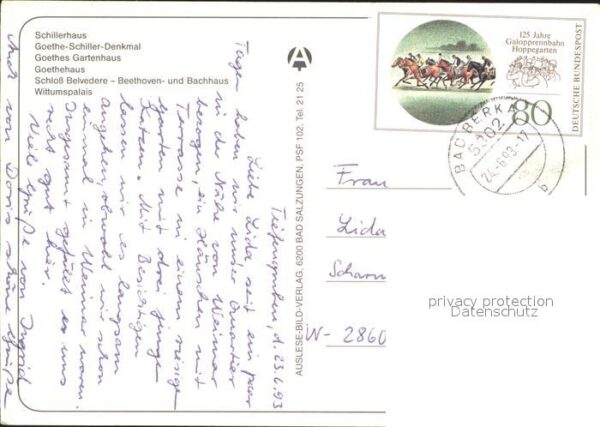 Schillerhaus
Goethe-Schiller-Denkmal
Goethes Gartenhaus
Goethehaus
Schloß Belvedere – Beethoven- und Bachhaus
Wittumspalais
AUSLESE-BILD-VERLAG, 6200 BAD SALZUNGEN, PSF 102, Tel. 21 25
125 Jahre
Galopprennbahn
Hoppegarten
DEUTSCHE BUNDESPOST
80
BAD BERKA
5302
24.-6.93-17
b
d. 23.6.93
Liebe Lida, seit ein paar
Tagen haben wir unser Quartier
in der Nähe von Weimar
bezogen, ein Häuschen mit
Terrasse in einem riesigen
garten mit drei jungen
Katzen. Mit Besichtigen
lassen wir es langsam
angehen, obwohl wir schon
einmal in Weimar waren.
Insgesamt gefällt es uns
recht gut hier.
Viele Grüße von Ingrid
Auch von Doris schöne Grüße
Frau
Lida
Scharn
W- 2860
privacy protection
Datenschutz